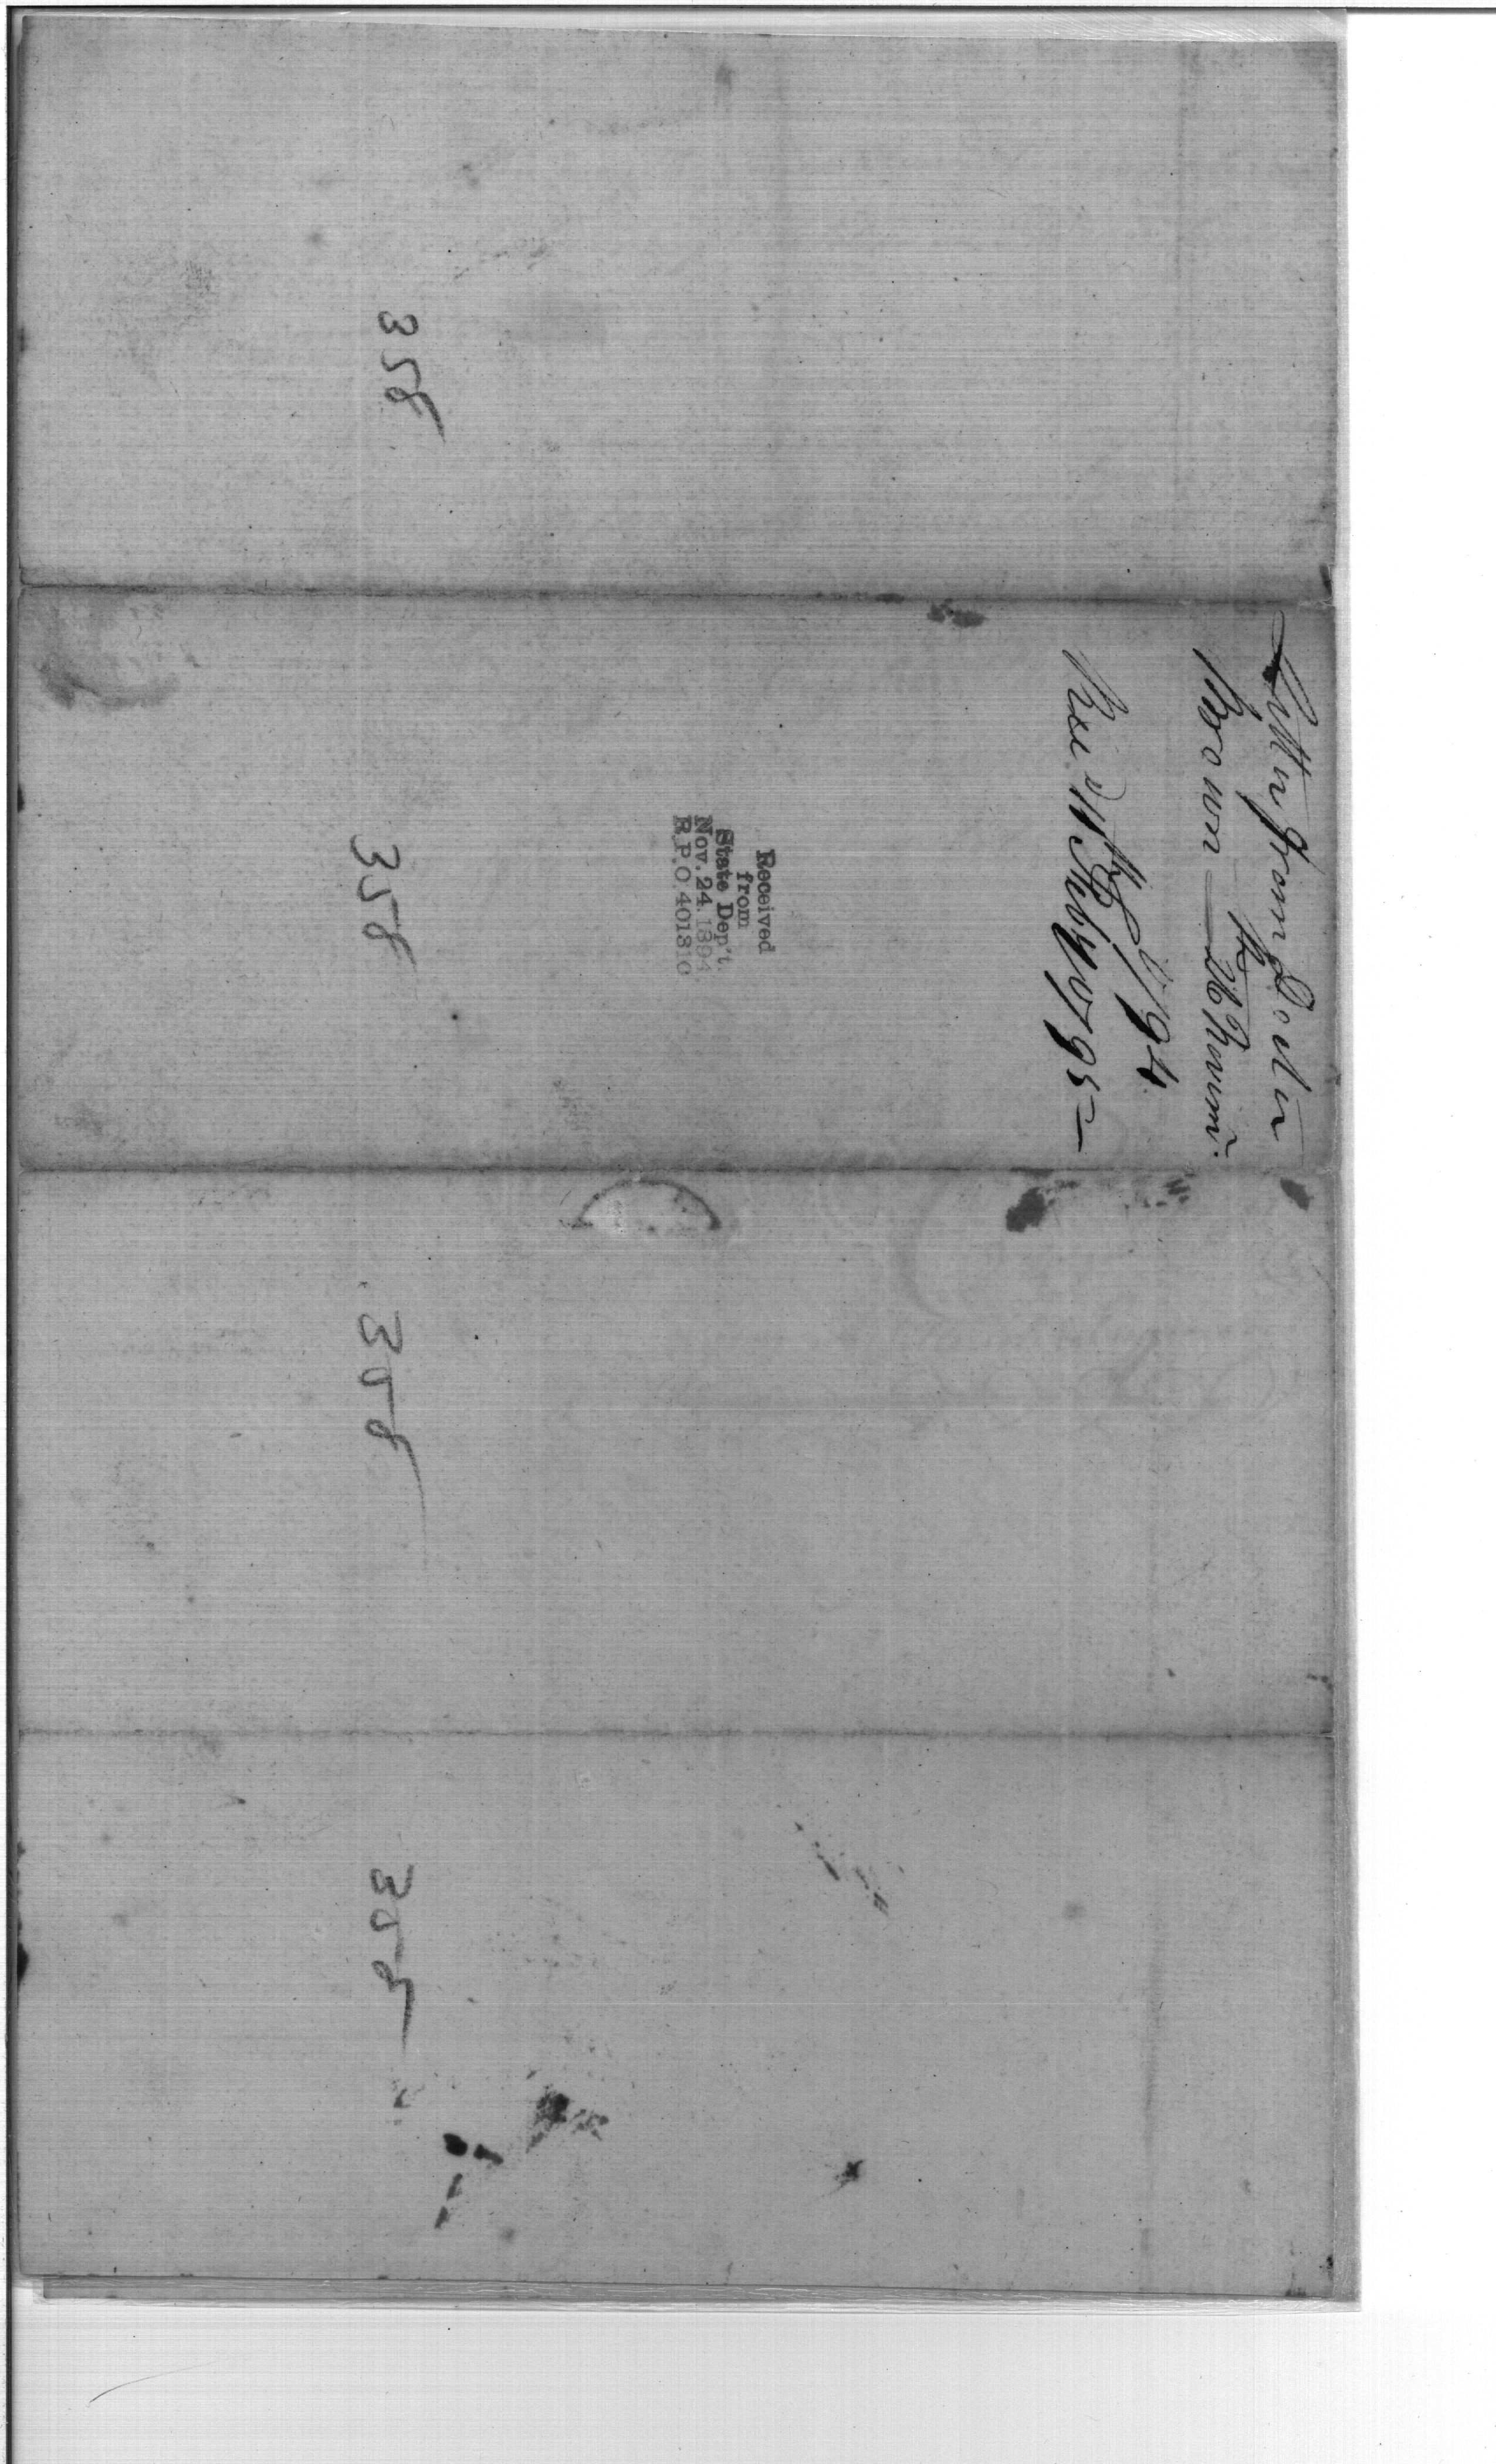 358
Letter from Doctor
Brown
1794
Rec'd 11 Feby 1795
Received
from
State Dep't.
Nov. 24. 1894
R.P.O. 401310
358
358
358